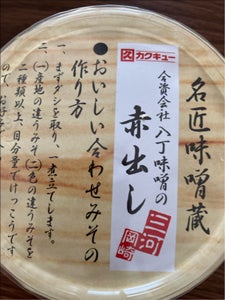 名匠味噌蔵
久 カクキュー
合資会社 八丁味噌の
赤出し
三河
岡崎
●おいしい合わせみその
作り方
一、まずダシを取り、一煮立てします。
二、(一)産地の違うみそ(二)色の違うみそを
二種類以上、目分量でけっこうです